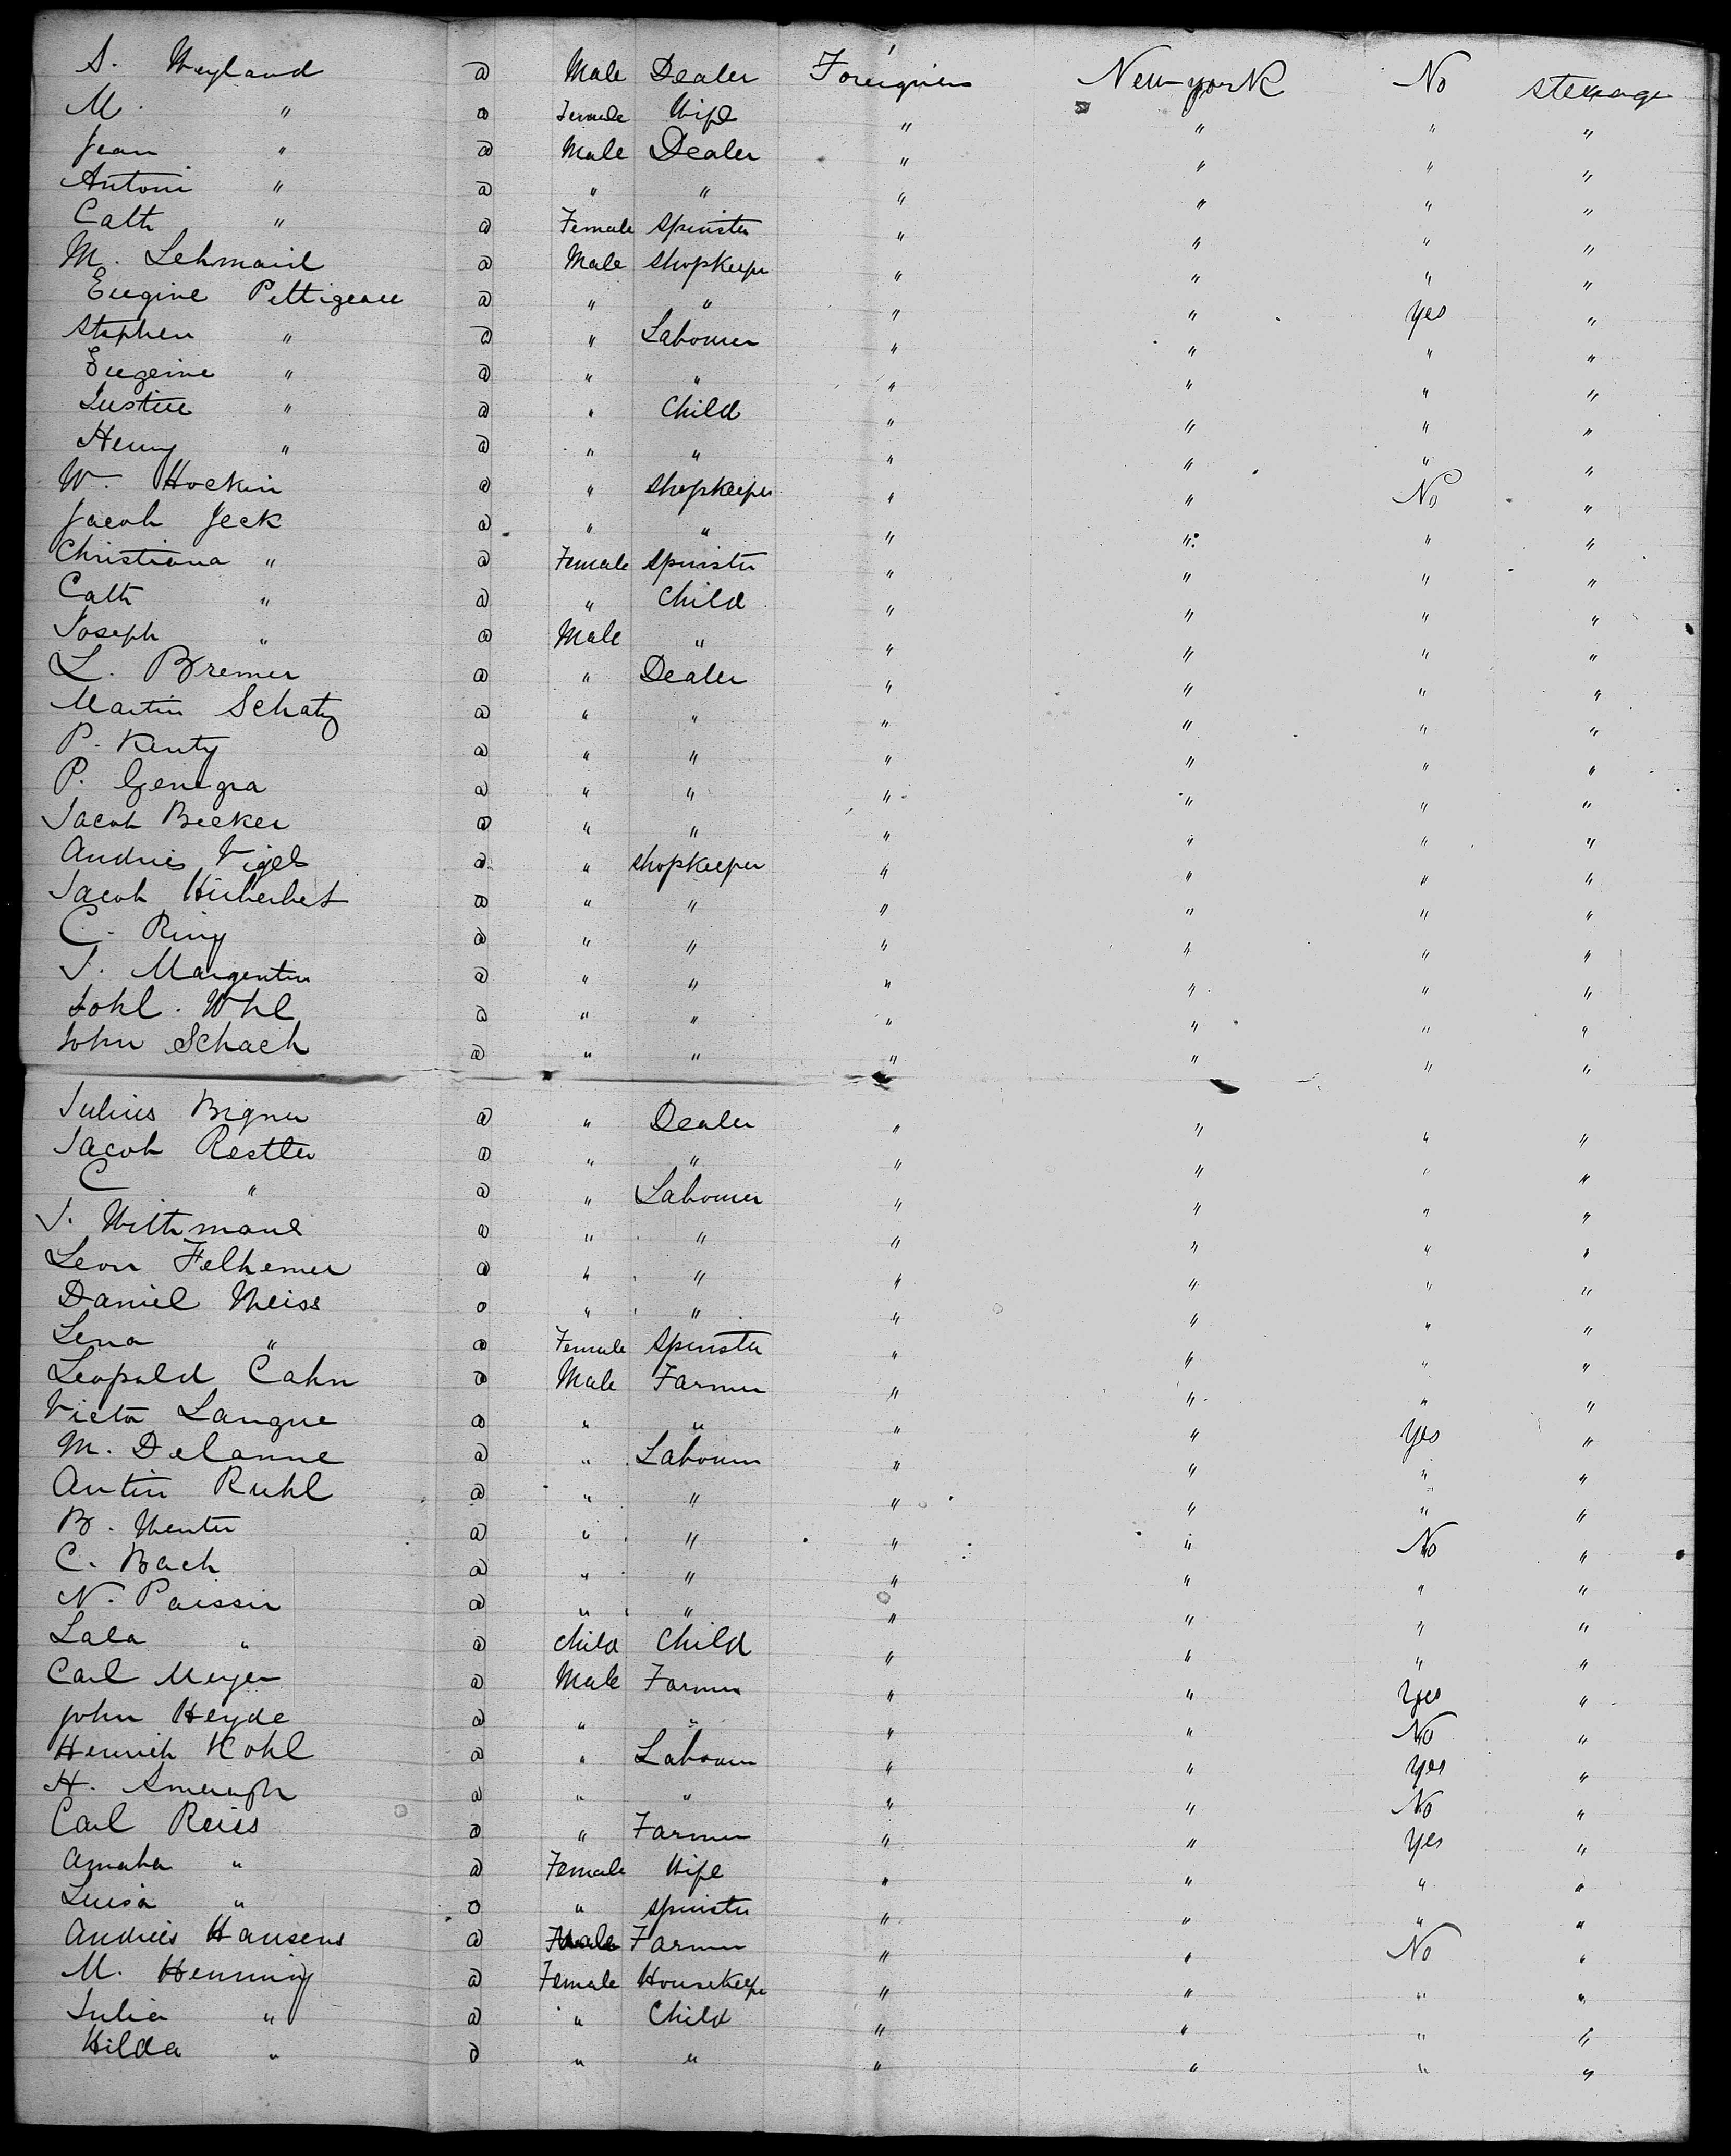 S. Weyland @ Male Dealer Foreigners New-york No steerage
M. " @ Female Wife " " " "
Jean " @ Male Dealer " " " "
Antoni " @ " " " " " "
Cath " @ Female spinster " " " "
M. Lehmaird @ Male shopkeeper " " " "
Eugine Pettigeau @ " " " " Yes "
Stephen " @ " Labourer " " " "
Eugenie " @ " " " " " "
Justin " @ " Child " " " "
Henry " @ " " " " " "
W. Hockin @ " shopkeeper " " No "
Jacob Jeck @ " " " " " "
Christiana " @ Female spinster " " " "
Cath " @ " Child " " " "
Joseph " @ Male " " " " "
L. Bremer @ " Dealer " " " "
Martin Schatz @ " " " " " "
P. Kentz @ " " " " " "
P. Genegra @ " " " " " "
Jacob Becker @ " " " " " "
Andries Vigel @ " shopkeeper " " " "
Jacob @ " " " " " "
C. Ring @ " " " " " "
J. Margentin @ " " " " " "
Johl. Whl @ " " " " " "
John Schach @ " " " " " "
Julius Bigner @ " Dealer " " " "
Jacob Restler @ " " " " " "
C " @ " Labourer " " " "
J. Withmand @ " " " " " "
Leon Felhemer @ " " " " " "
Daniel Weiss @ " " " " " "
Lena " @ Female spinster " " " "
Leopold Cahn @ Male Farmer " " " "
Victor Langue @ " " " " Yes "
M. Delanne @ " Labourer " " " "
Antin Ruhl @ " " " " " "
B. Wenter @ " " " " No "
C. Bach @ " " " " " "
N. Paissin @ " " " " " "
Lala " @ child Child " " " "
Carl Meyer @ Male Farmer " " Yes "
John Heyde @ " " " " No "
Henrich Kohl @ " Labourer " " Yes "
H. @ " " " " No "
Carl Reiss @ " Farmer " " Yes "
Amaha " @ Female Wife " " " "
Luisa " @ " spinster " " " "
Andries Hansens @ Male Farmer " " No "
M. Henning @ Female Housekeeper " " " "
Julia " @ " Child " " " "
Hilda " @ " " " " " "